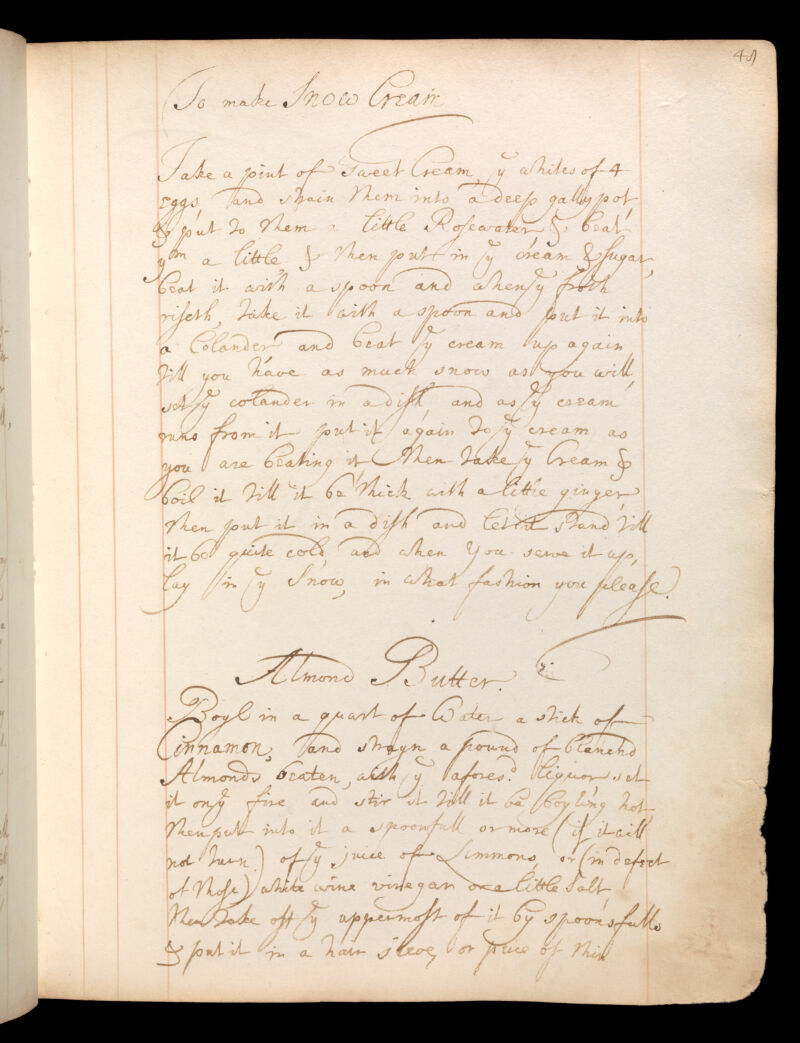 To make Snow Cream
Take a pint of sweet Cream, ye whites of 4
eggs, and strain them into a deep gallypot,
& put to them a little Rosewater & beat
ym a little, & then put in ye cream & sugar,
beat it with a spoon and when ye froth
riseth, take it with a spoon and put it into
a Colander and beat ye cream up again
till you have as much snow as you will,
set ye colander in a dish and as ye cream
runs from it put it again to ye cream as
you are beating it, then take ye Cream &
boil it till it be thick with a little ginger,
then put it in a dish and let it stand till
it be quite cold, and when you serve it up,
lay in ye Snow, in what fashion you please.
Almond Butter.
Boyl in a quart of Water a stick of
Cinnamon, and strayn a pound of blanchd
Almonds beaten, with ye afores.d liquor set
it on ye fire and stir it till it be boyling hot,
then put into it a spoonfull or more (if it will
not turn) of ye juice of Limmons, or (in defect
of those) white wine vinegar or a little Salt
then take off ye uppermost of it by spoonsfulls
& put it in a hair sieve, or piece of thin